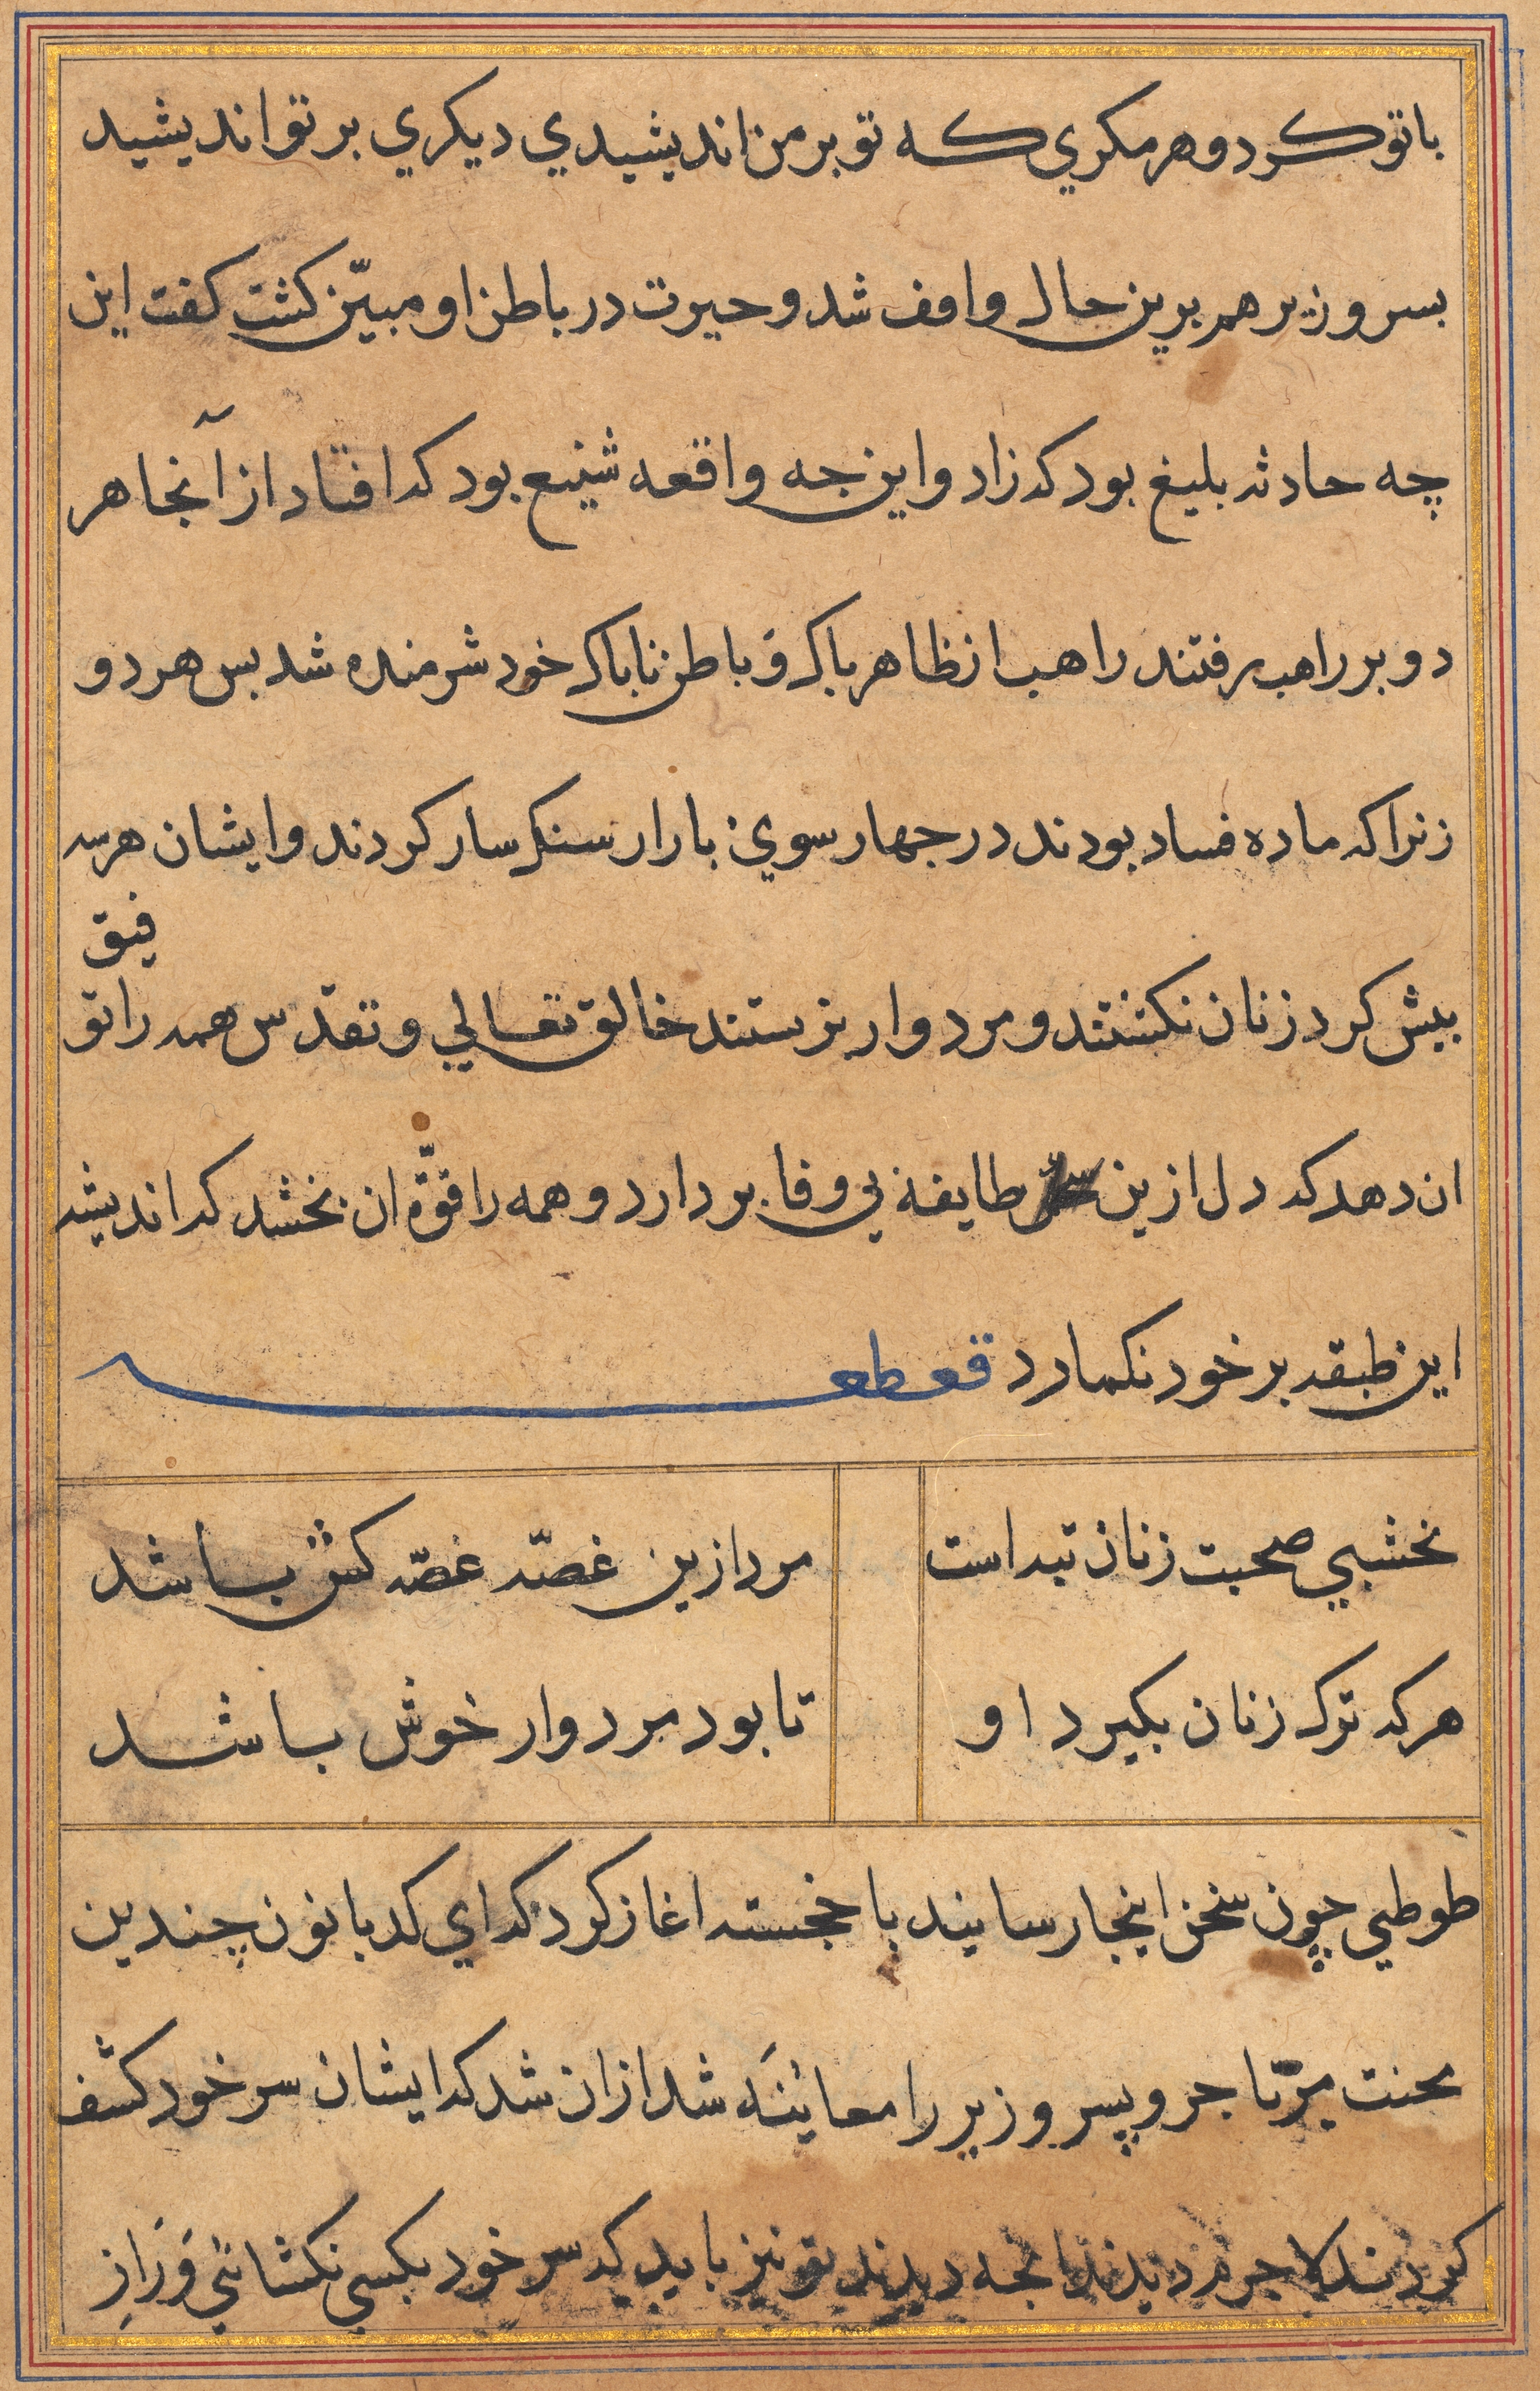 باتو کرد و هر مکري که تو بر من اندیشیدي دیکري بر تو اندیشید
بسر وزیر هم برین حال واقف شد و حیرت در باطن او مبیّن کشت کفت این
چه حادثه بلیغ بود که زاد و این جه واقعه شنیع بود که افتاد از آنجا هر
دو بر راهب رفتند راهب از ظاهر باک و باطن ناباک خود شرمنده شد بس هر دو
زنرا که ماده فساد بودند در جهار سوي بازار سنکسار کردند و ایشان هر سه
فیق
بیش کرد زنان نکشتند و مردوار بزیستند خالق تعالي و تقدّس همه را تو
ان دهد که دل ازین طایفه بي وفا بردارد و همه را قوّة ان بخشد که اندیشه
این طبقه بر خود نکمارد قطعه
نخشبي صحبت زنان تبه است
مرد ازین غصّه غصّه کش باشد
هر که ترک زنان بکیرد او
تا بود مردوار خوش باشد
طوطي چون سخن اینجا رسانید با خجسته اغاز کرد که اي کدبانو ن چندین
محنت بر تاجر و پسر وزیر را معائنه شد ازان شد که ایشان سر خود کشف
کردند لاجرم دیدند انجه دیدند تو نیز باید که سر خود بکسي نکشائي و راز